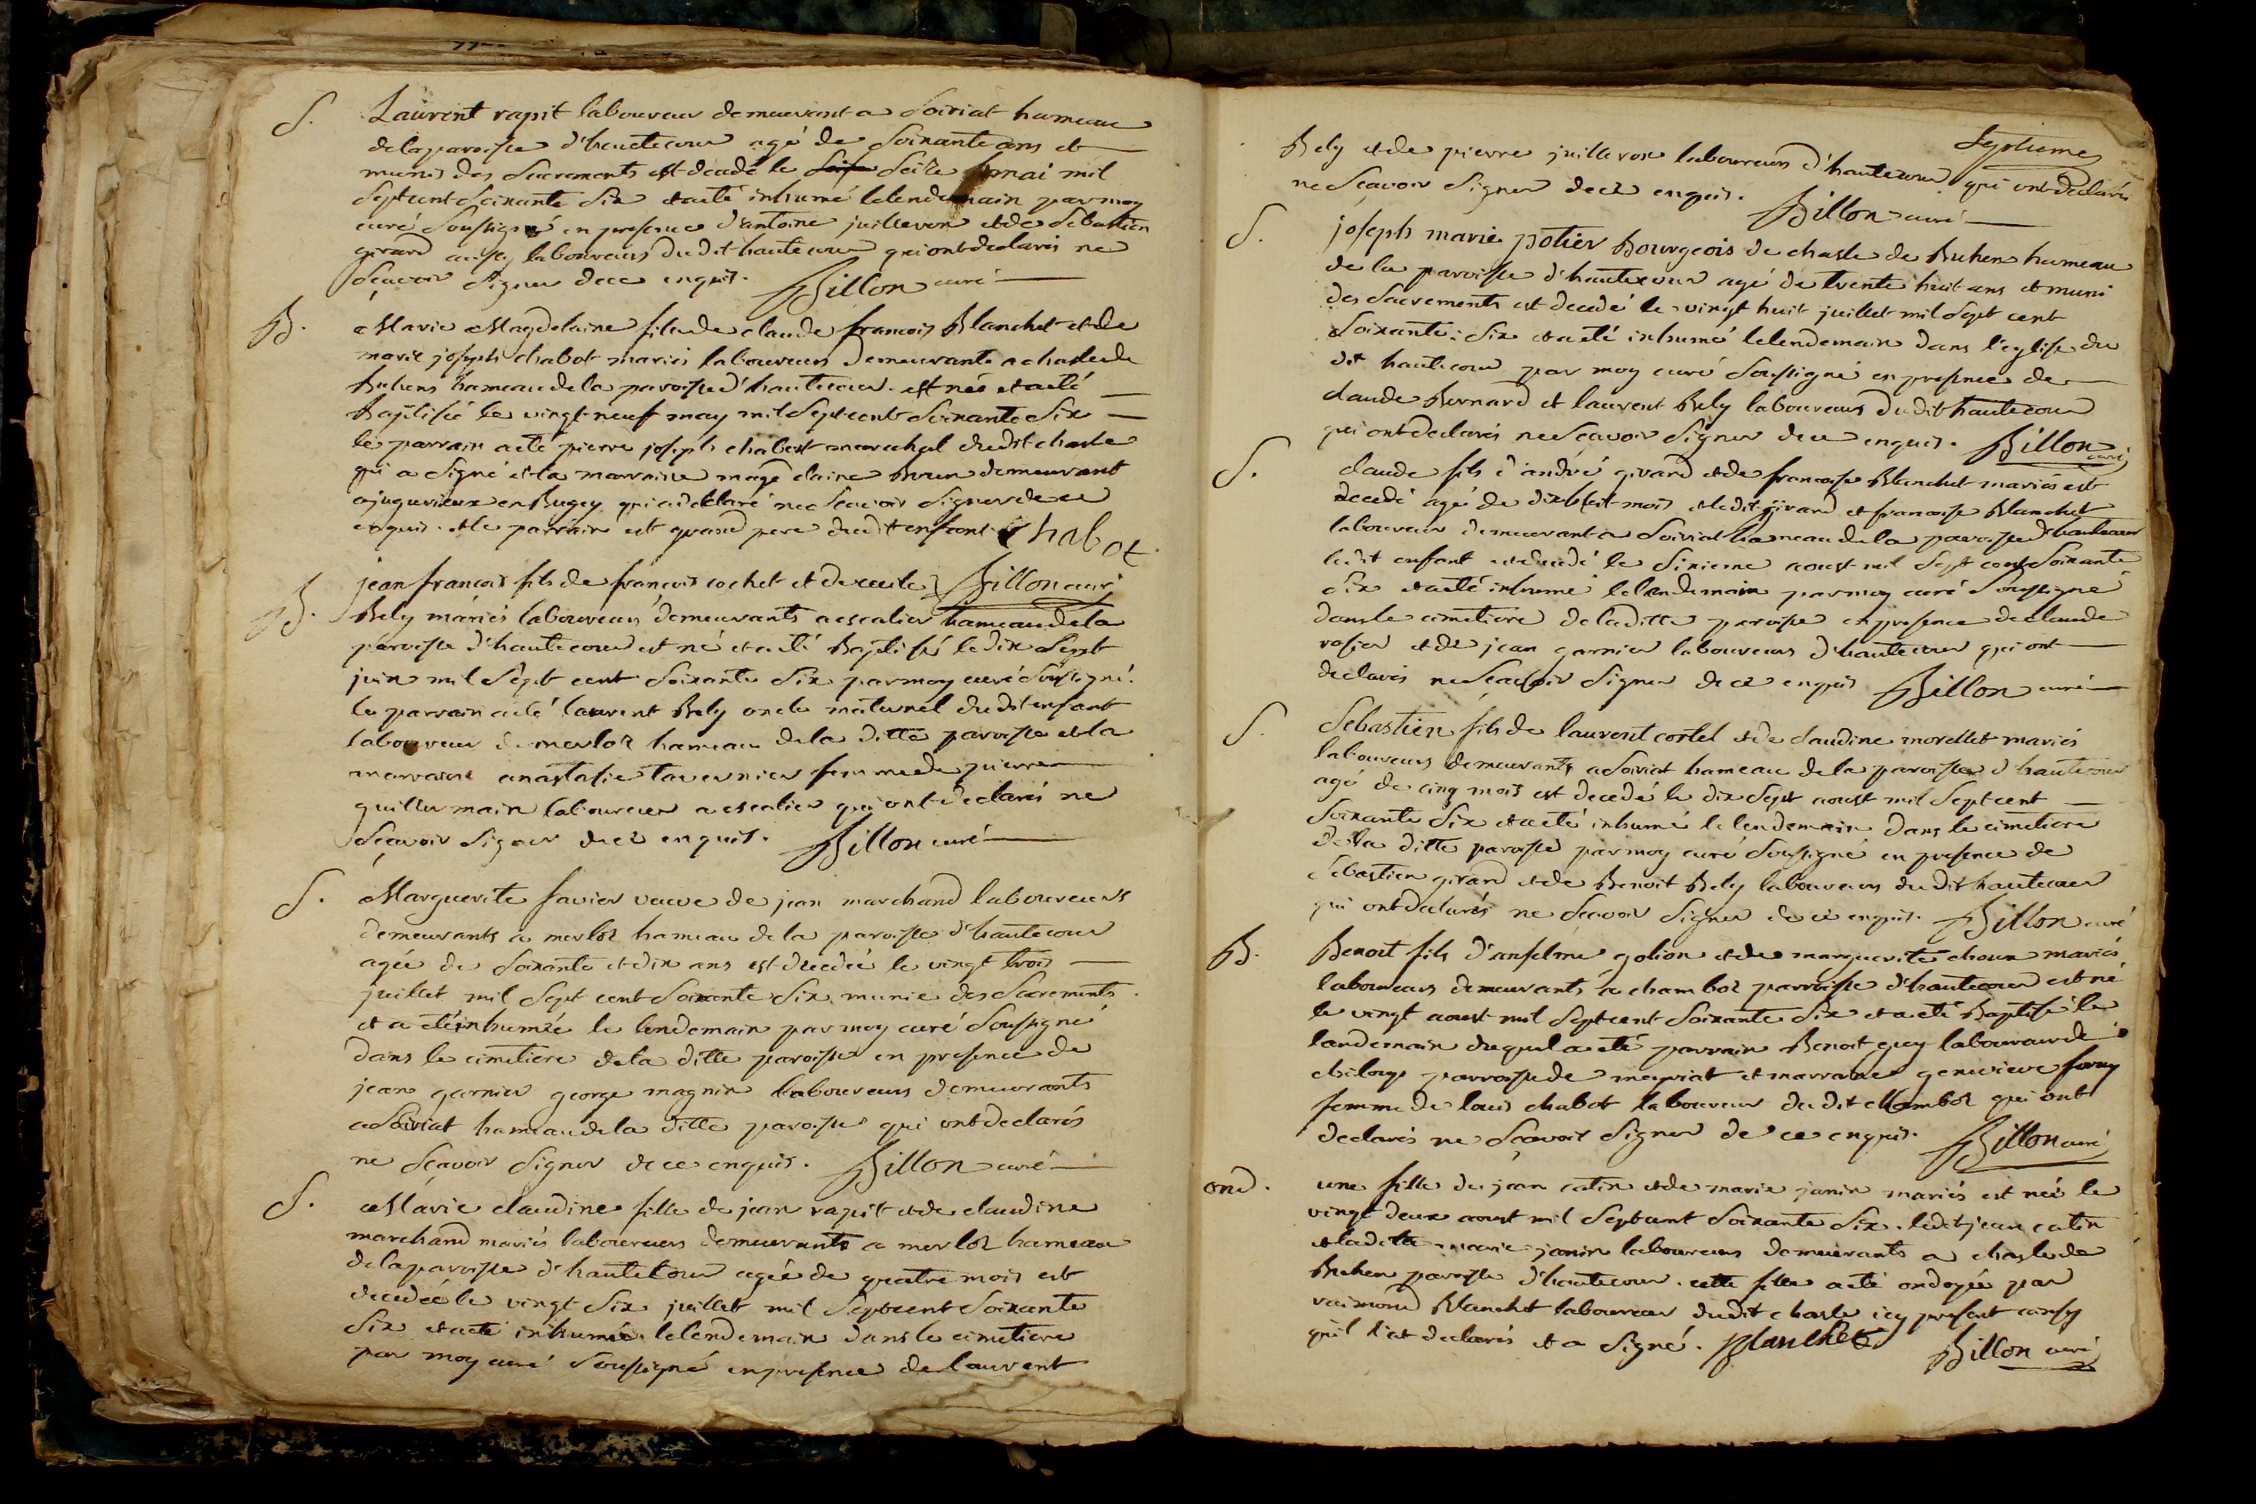 S. Laurent rapit laboureur demeurant a Soiriat hameau
de la paroisse d'hautecour agé de Soixante ans et
munis des Sacrements est decedé le Seize mai mil
Sept cent Soixante Six et a eté inhumé le lendemain par moy
curé Soussigné en presence d'antoine juilleron et de Sebastien
girard aussy laboureurs du dit hautecour qui ont declarés ne
Sçavoir Signer de ce enquis. Billon curé
B. Marie Magdelaine fille de claude francois Blanchet et de
marie joseph chabot mariés laboureurs demeurants a chasle de
Buhens hameau de la paroisse d'hautecour est née et a eté
baptisée le vingt neuf may mil Sept cent Soixante Six
le parrain a eté pierre joseph chabot marechal du dit chasle
qui a Signé et la marraine magdelaine Brun demeurant
a jugurieux en Bugey qui a declaré ne Sçavoir Signer de ce
enquis. et le parrain est grand pere du dit enfant. Chabot
B. jean francois fils de francois cochet et de cecile Billon curé
Bely mariés laboureurs demeurants a escalier hameau de la
paroisse d'hautecour est né et a eté Baptisé le dix Sept
juin mil Sept cent Soixante Six par moy curé Soussigné.
le parrain a eté laurent Bely oncle maternel du dit enfant
laboureur de merloz hameau de la ditte paroisse et la
marraine anastasie tavernier femme de pierre
guillermain laboureur a escalier qui ont declarés ne
Sçavoir Signer de ce enquis. Billon curé
S. Marguerite favier veuve de jean marchand laboureurs
demeurants a merloz hameau de la paroisse d'hautecour
agée de Soixante et dix ans est decedée le vingt trois
juillet mil Sept cent Soixante Six munie des Sacrements.
et a eté inhumée le lendemain par moy curé Soussigné
dans le cimetiere de la ditte paroisse en presence de
jean garnier george magnin laboureurs demeurants
a Soiriat hameau de la ditte paroisse qui ont declarés
ne Sçavoir Signer de ce enquis. Billon curé
S. Marie claudine fille de jean rapit et de claudine
marchand mariés laboureurs demeurants a merloz hameau
de la paroisse d'hautecour agée de quatre mois est
decedée le vingt Six juillet mil Sept cent Soixante
Six et a eté inhumée le lendemain dans le cimetiere
par moy curé Soussigné en presence de laurent
Septieme
Bely et de pierre juilleron laboureurs d'hautecour qui ont declarés
ne Sçavoir Signer de ce enquis. Billon curé
S. joseph marie potier Bourgeois de chasle de Buhen hameau
de la paroisse d'hautecour agé de trente huit ans et muni
des Sacrements est decedé le vingt huit juillet mil Sept cent
Soixante: Six et a eté inhumé le lendemain dans l'eglise du
dit hautecour par moy curé Soussigné en presence de
claude Bernard et laurent Bely laboureurs du dit hautecour
qui ont declarés ne Sçavoir Signer de ce enquis. Billon curé
S. claude fils d'andré girard et de francoise Blanchet mariés est
decedé agé de dix huit mois et ledit girard et francoise Blanchet
laboureur demeurant a Soiriat hameau de la paroisse d'hautecour
ledit enfant est decedé le Sixieme aoust mil Sept cent Soixante
Six et a eté inhumé le lendemain par moy curé Soussigné
dans le cimetiere de la ditte paroisse en presence de claude
rosier et de jean garnier laboureurs d'hautecour qui ont
declarés ne Sçavoir Signer de ce enquis Billon curé
S. Sebastien fils de laurent cortel et de claudine morellet mariés
laboureurs demeurants a Soiriat hameau de la paroisse d'hautecour
agé de cinq mois est decedé le dix Sept aoust mil Sept cent
Soixante Six et a eté inhumé le lendemain dans le cimetiere
de la ditte paroisse par moy curé Soussigné en presence de
Sebastien girard et de Benoit Bely laboureurs du dit hautecour
qui ont declarés ne Sçavoir Signer de ce enquis. Billon curé
B. Benoit fils d'anselme golion et de marguerite mariés
laboureurs demeurants a chamboz parroisse d'hautecour est né
le vingt aoust mil Sept cent Soixante Six et a eté Baptisé le
landemain duquel a eté parrain Benoit guy laboureur de
chiloup parroisse de meyriat et marraine genevieve
femme de louis chabot laboureur du dit chamboz qui ont
declarés ne Sçavoir Signer de ce enquis. Billon curé
ond. une fille de jean catin et de marie janin mariés est née le
vingt deux aoust mil Sept cent Soixante Six. ledit jean catin
et la ditte marie janin laboureurs demeurants a chasle de
Buhen paroisse d'hautecour. cette fille a eté ondoyée par
raimond Blanchet laboureur du dit chasle icy present ainsy
qu'il l'at declarés et a Signé. Blanchet Billon curé